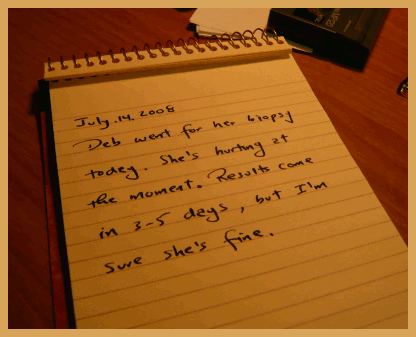 July.14.2008
Deb went for her biopsy
today. She's hurting at
the moment. Results come
in 3-5 days, but I'm
sure she's fine.